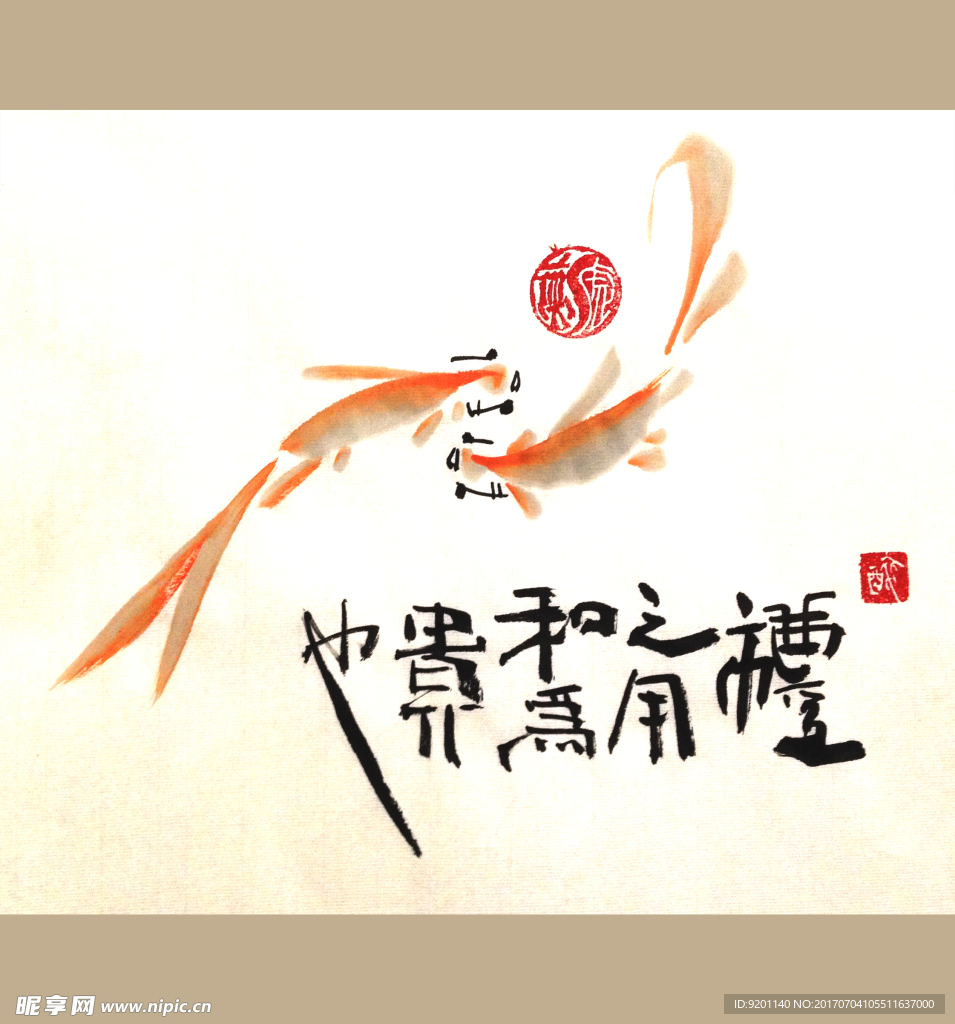 禮
之用
和為
貴
也
昵享网 www.nipic.cn
ID:9201140 NO:20170704105511637000